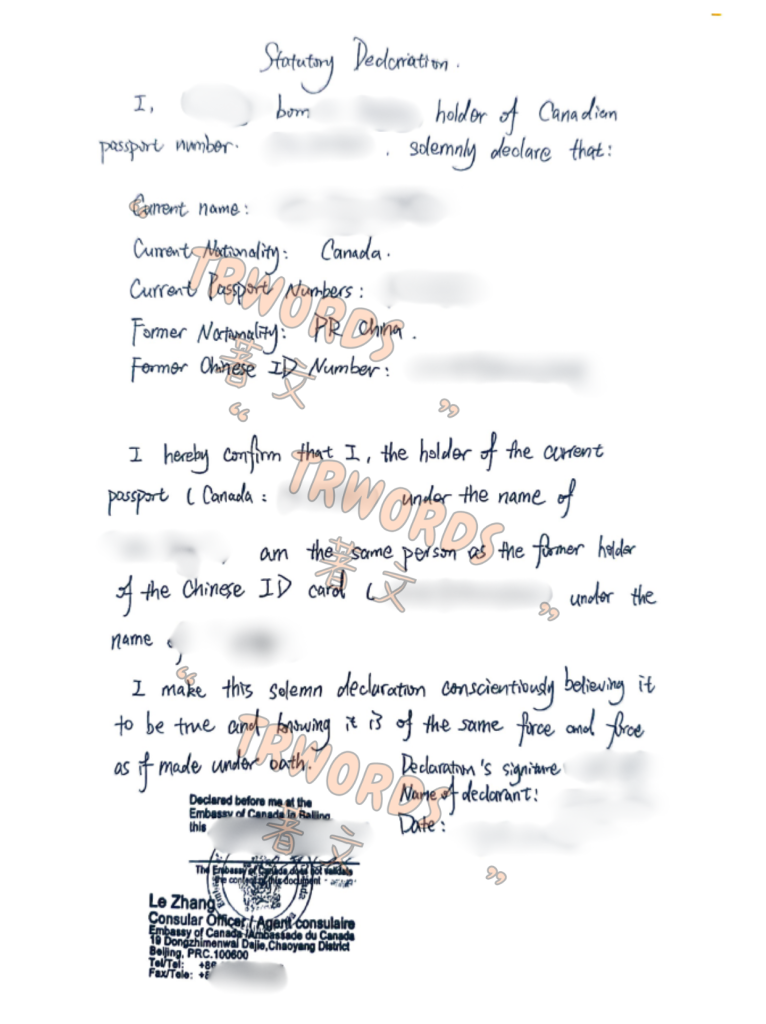 Statutory Declaration.
I, born holder of Canadian
passport number. . solemnly declare that:
Current name:
Current Nationality: Canada.
Current Passport Numbers:
Former Nationality: PR China.
Former Chinese ID Number:
I hereby confirm that I, the holder of the current
passport ( Canada : under the name of
, am the same person as the former holder
of the Chinese ID card ( under the
name
I make this solemn declaration conscientiously believing it
to be true and knowing it is of the same force and force
as if made under oath.
Declaration's signiture
Name of declarant:
Date:
Declared before me at the
Embassy of Canada in Beijing
this
The Embassy of Canada does not validate
the content of this document
Le Zhang
Consular Officer / Agent consulaire
Embassy of Canada /Ambassade du Canada
19 Dongzhimenwai Dajie,Chaoyang District
Beijing, PRC.100600
Tel/Tel: +86
Fax/Tele: +8
TRWORDS
著文
TRWORDS
著文
TRWORDS
著文